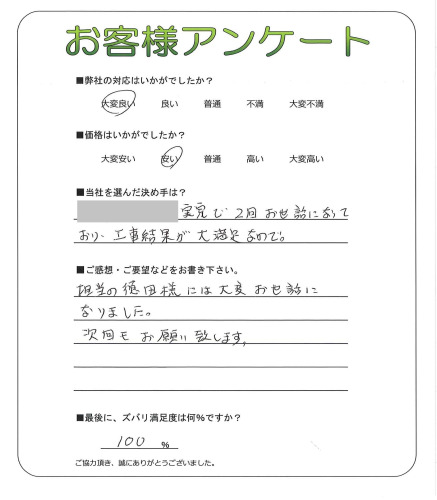 お客様アンケート
■弊社の対応はいかがでしたか?
大変良い 良い 普通 不満 大変不満
■価格はいかがでしたか?
大変安い 安い 普通 高い 大変高い
■当社を選んだ決め手は?
実見で2回お世話になって
おり、工事結果が大満足なので。
■ご感想・ご要望などをお書き下さい。
担当の徳田様には大変お世話に
なりました。
次回もお願い致します。
■最後に、ズバリ満足度は何%ですか?
100 %
ご協力頂き、誠にありがとうございました。